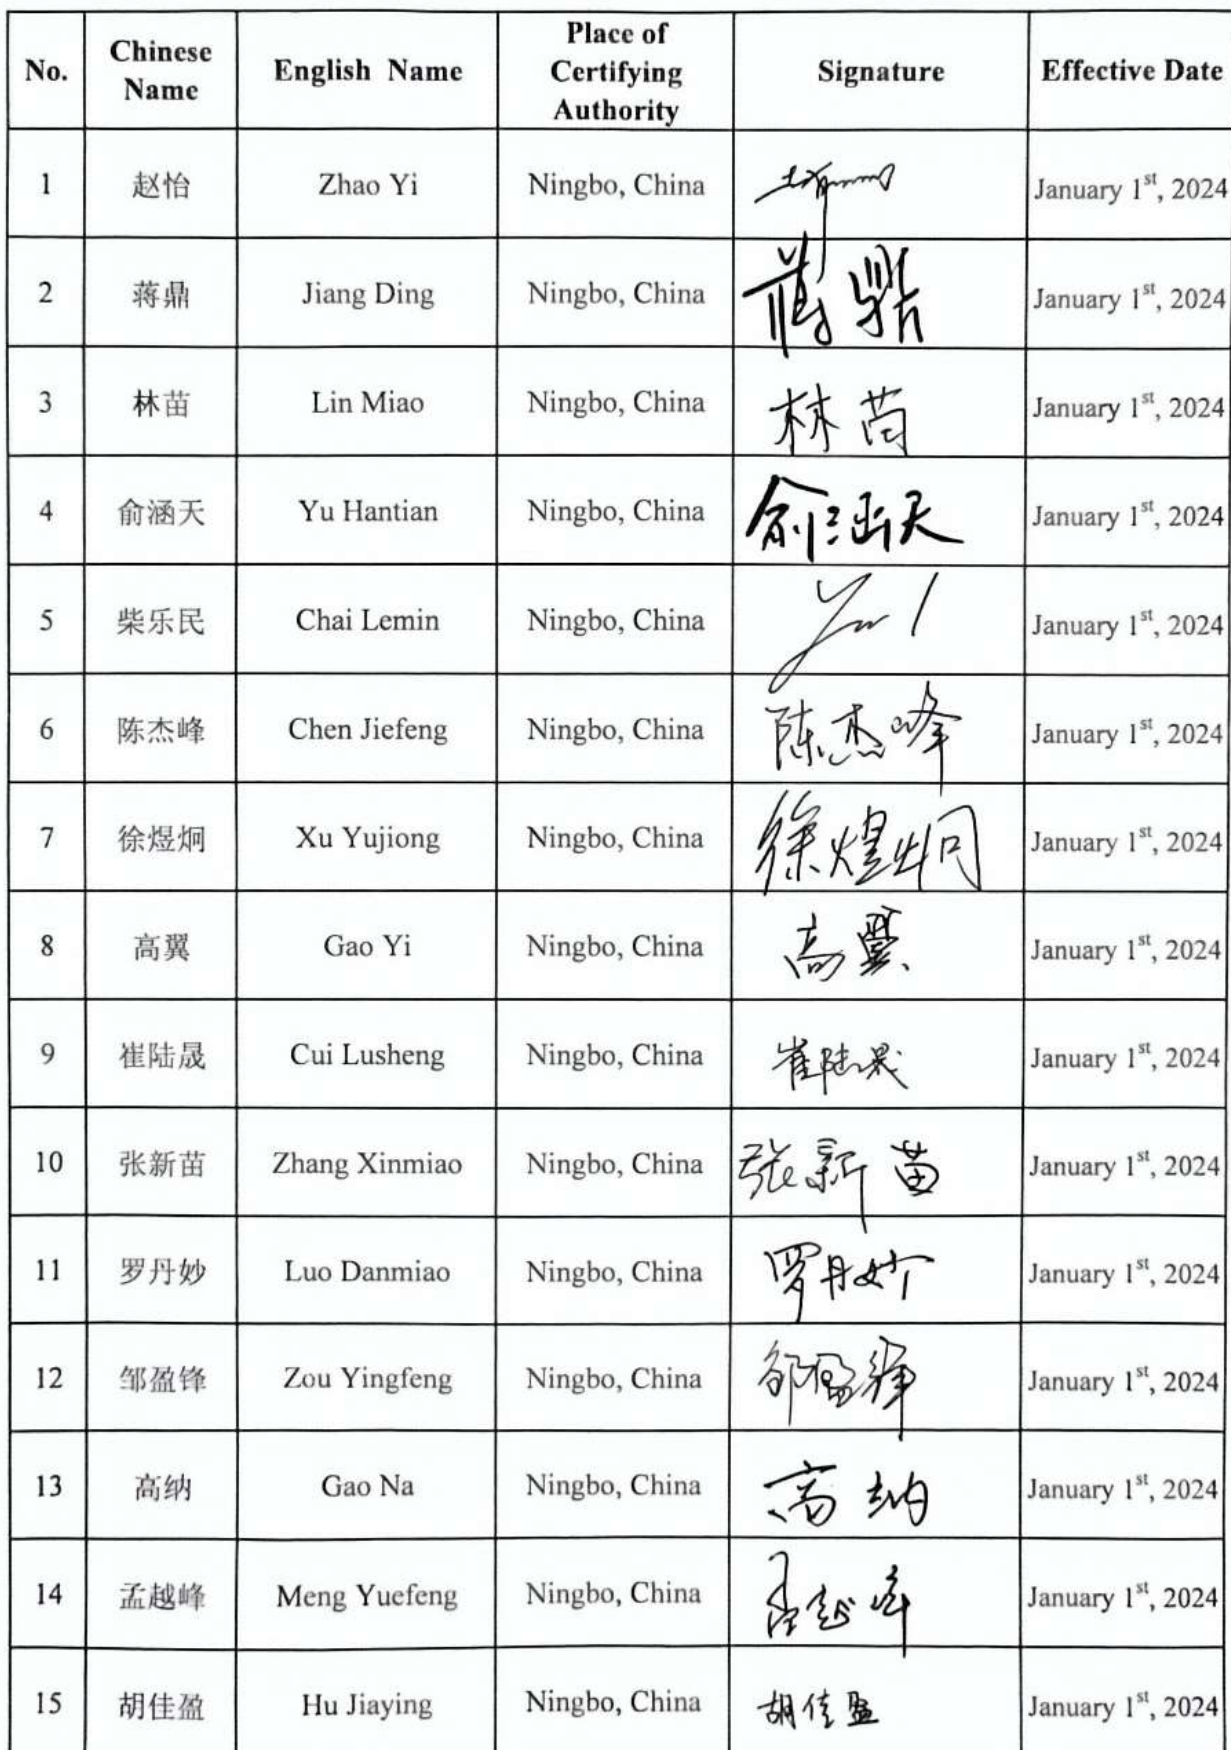 No. Chinese Name English Name Place of Certifying Authority Signature Effective Date
1 赵怡 Zhao Yi Ningbo, China January 1st, 2024
2 蒋鼎 Jiang Ding Ningbo, China 蒋鼎 January 1st, 2024
3 林苗 Lin Miao Ningbo, China 林苗 January 1st, 2024
4 俞涵天 Yu Hantian Ningbo, China 俞涵天 January 1st, 2024
5 柴乐民 Chai Lemin Ningbo, China January 1st, 2024
6 陈杰峰 Chen Jiefeng Ningbo, China 陈杰峰 January 1st, 2024
7 徐煜炯 Xu Yujiong Ningbo, China 徐煜炯 January 1st, 2024
8 高翼 Gao Yi Ningbo, China 高翼 January 1st, 2024
9 崔陆晟 Cui Lusheng Ningbo, China 崔陆晟 January 1st, 2024
10 张新苗 Zhang Xinmiao Ningbo, China 张新苗 January 1st, 2024
11 罗丹妙 Luo Danmiao Ningbo, China 罗丹妙 January 1st, 2024
12 邹盈锋 Zou Yingfeng Ningbo, China 邹盈锋 January 1st, 2024
13 高纳 Gao Na Ningbo, China 高纳 January 1st, 2024
14 孟越峰 Meng Yuefeng Ningbo, China 孟越峰 January 1st, 2024
15 胡佳盈 Hu Jiaying Ningbo, China 胡佳盈 January 1st, 2024